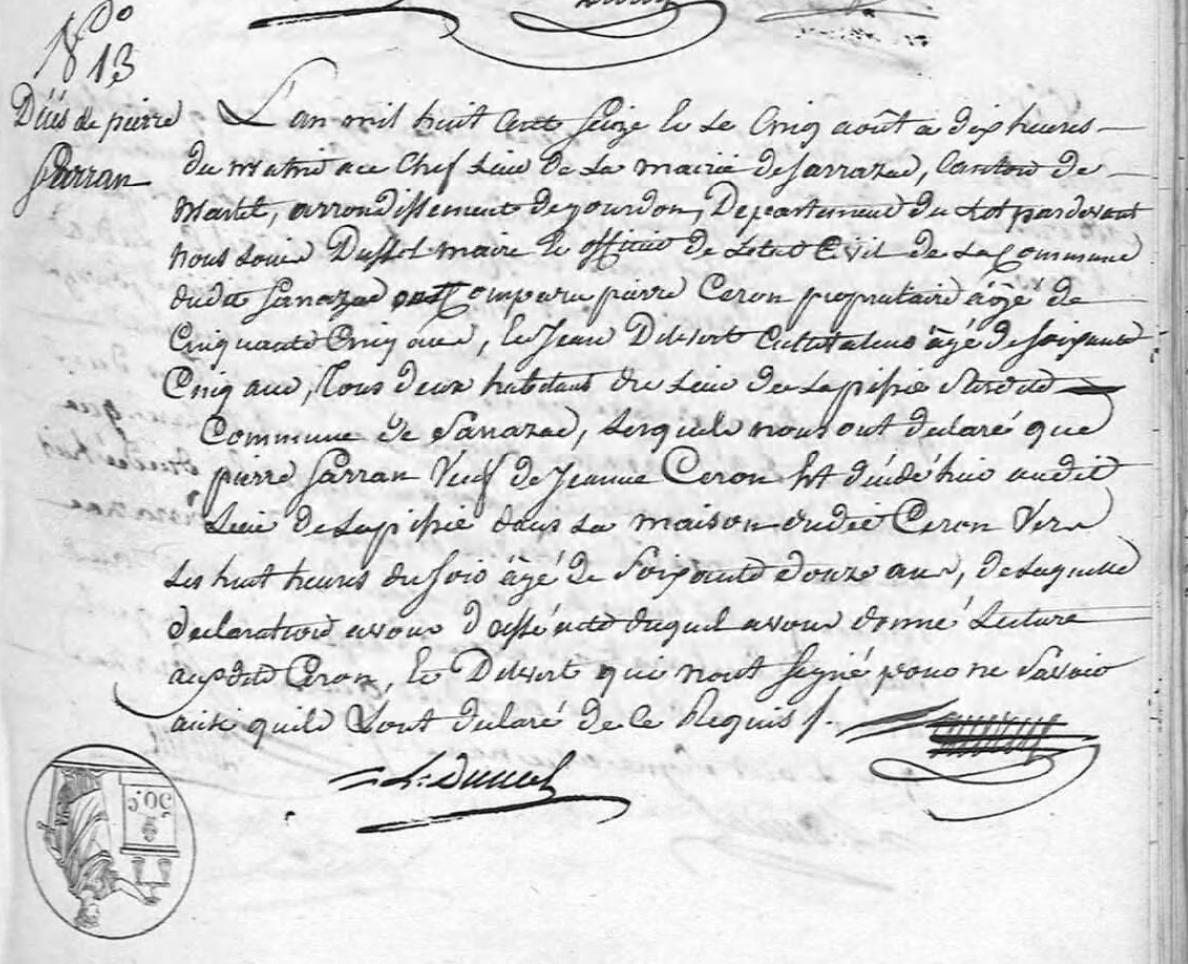 N° 13
Décés de pierre
Sarran
L'an mil huit cent seize le Le Cinq août a dix heures
du matin au Chef Lieu de La mairie de Sarrazac, Canton de
Martel, arrondissement de gourdon, Departement du Lot pardevant
nous Louis Dussel maire et officier de Létat Civil de La Commune
dudit Sarrazac ont Comparu pierre Ceron propriétaire âgé de
Cinquante Cinq ans, et Jean Delvert Cultivateur âgé de soixante
Cinq ans, Tous deux habitans du Lieu de Lapisse
Commune de Sarrazac, Lesquels nous ont déclaré que
pierre Sarran Veuf de Jeanne Ceron Est décédé hier audit
Lieu de Lapisse dans La maison dudit Ceron Vers
Les huit heures du soir âgé de soixante douze ans, de Laquelle
declaration avons Dressé acte duquel avons donné Lecture
auxdits Ceron, et Delvert qui n'ont signé pour ne savoir
ainsi quils L'ont déclaré de ce Requis
L. Dussel
50.c